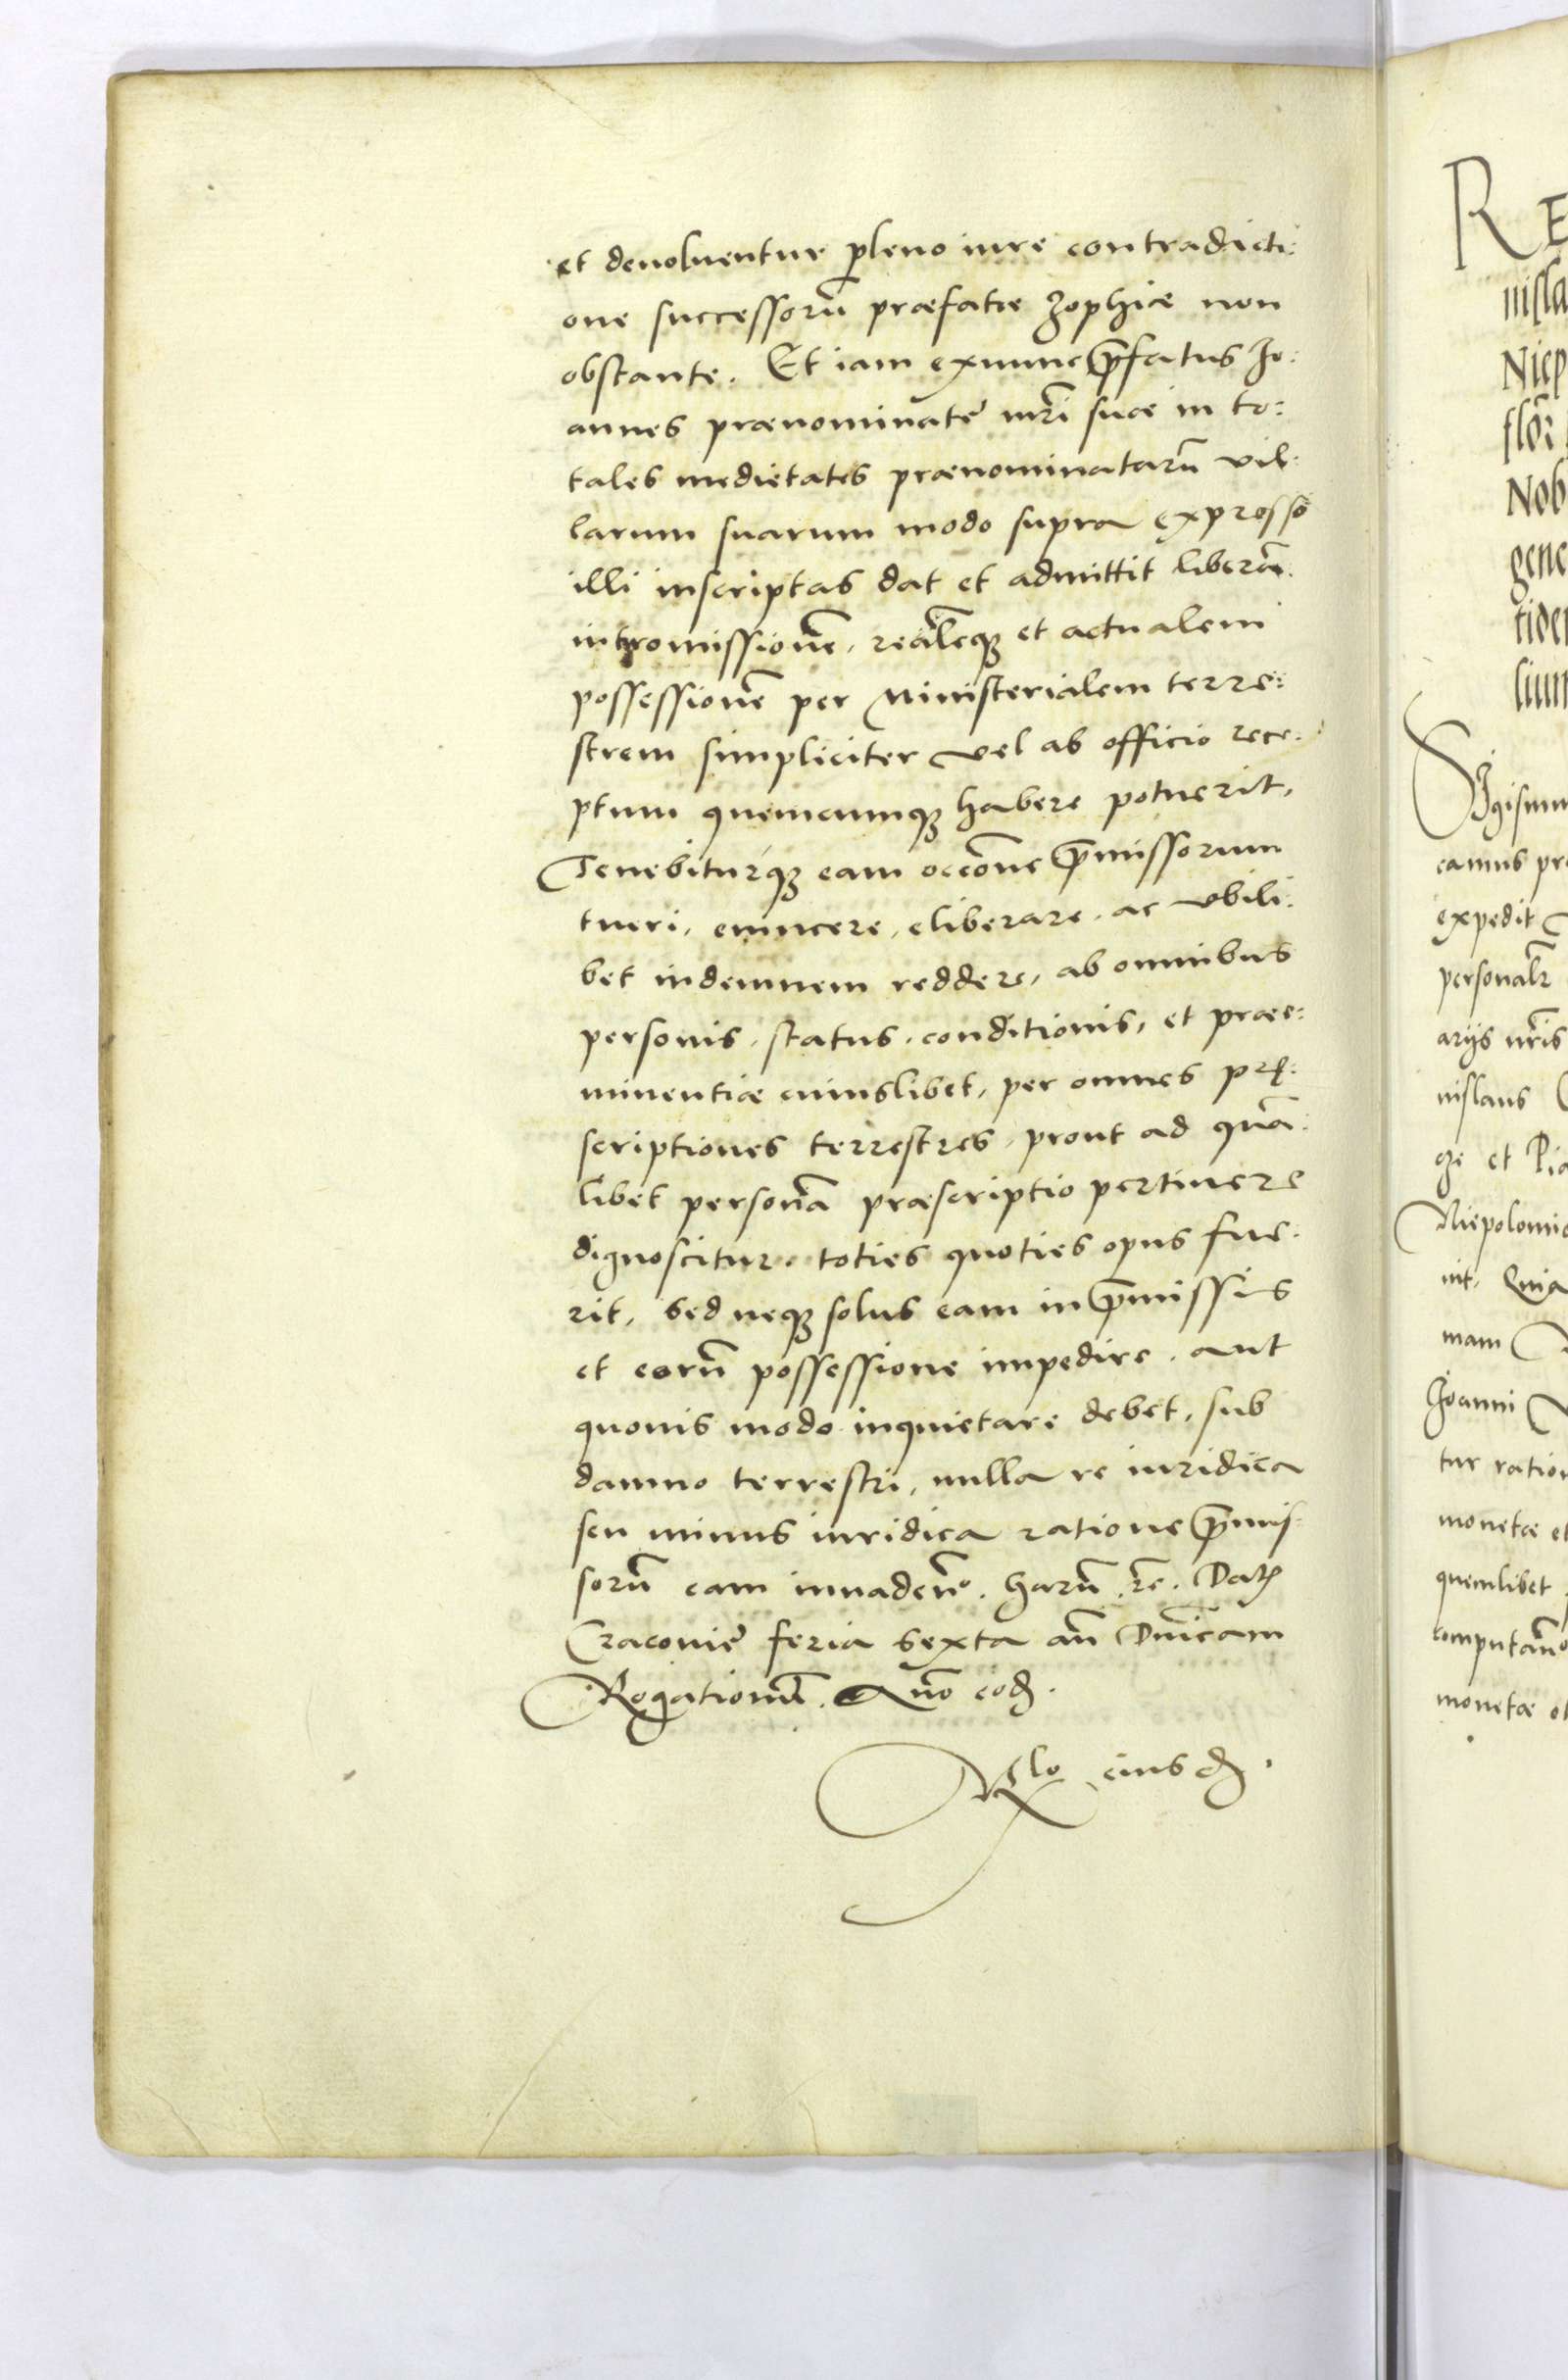 et deuoluentur pleno iure contradicti:
one successorũ præfatæ Zophiæ non
obstante. Et iam exnunc p̃fatus Jo:
annes prænominatę mr̃i suæ in to:
tales medietates prænominatarũ vil:
larum suarum modo supra expresso
illi inscriptas dat et admittit liberã
intromissionẽ, reãlẽq₃ et actualem
possessionẽ per Ministerialem terre:
strem simpliciter vel ab officio rece:
ptum quemcumq₃ habere potuerit,
Tenebiturq₃ eam occõne p̃missorum
tueri, euincere, eliberare, ac vbili:
bet indemnem reddere, ab omnibus
personis, status, conditionis, et præe:
minentiæ cuiuslibet, per omnes prę:
scriptiones terrestres, prout ad quã:
libet personã præscriptio pertinere
dignoscitur, toties quoties opus fue:
rit, Sed neq₃ solus eam in p̃missis
et eorũ possessione impedire, aut
quouis modo inquietare debet, sub
damno terrestri, nulla re iuridica
seu minus iuridica ratione p̃mis:
sorũ eam inuadeñ. harũ r̃e. Dat
Cracouię feria sexta añ Dñicam
Rogationũ. Añno eod.
Rlo eiusd.
RE
nisla
Niep
flor̃
Nob
gene
tide
lium
Sigismu
camus pr
expedit
personalr̃
arijs nr̃is
nislaus
ge et Pia
Niepolomic
uit, Quia
mam
Joanni
tur ration
monetæ et
quemlibet
computañ
monetæ